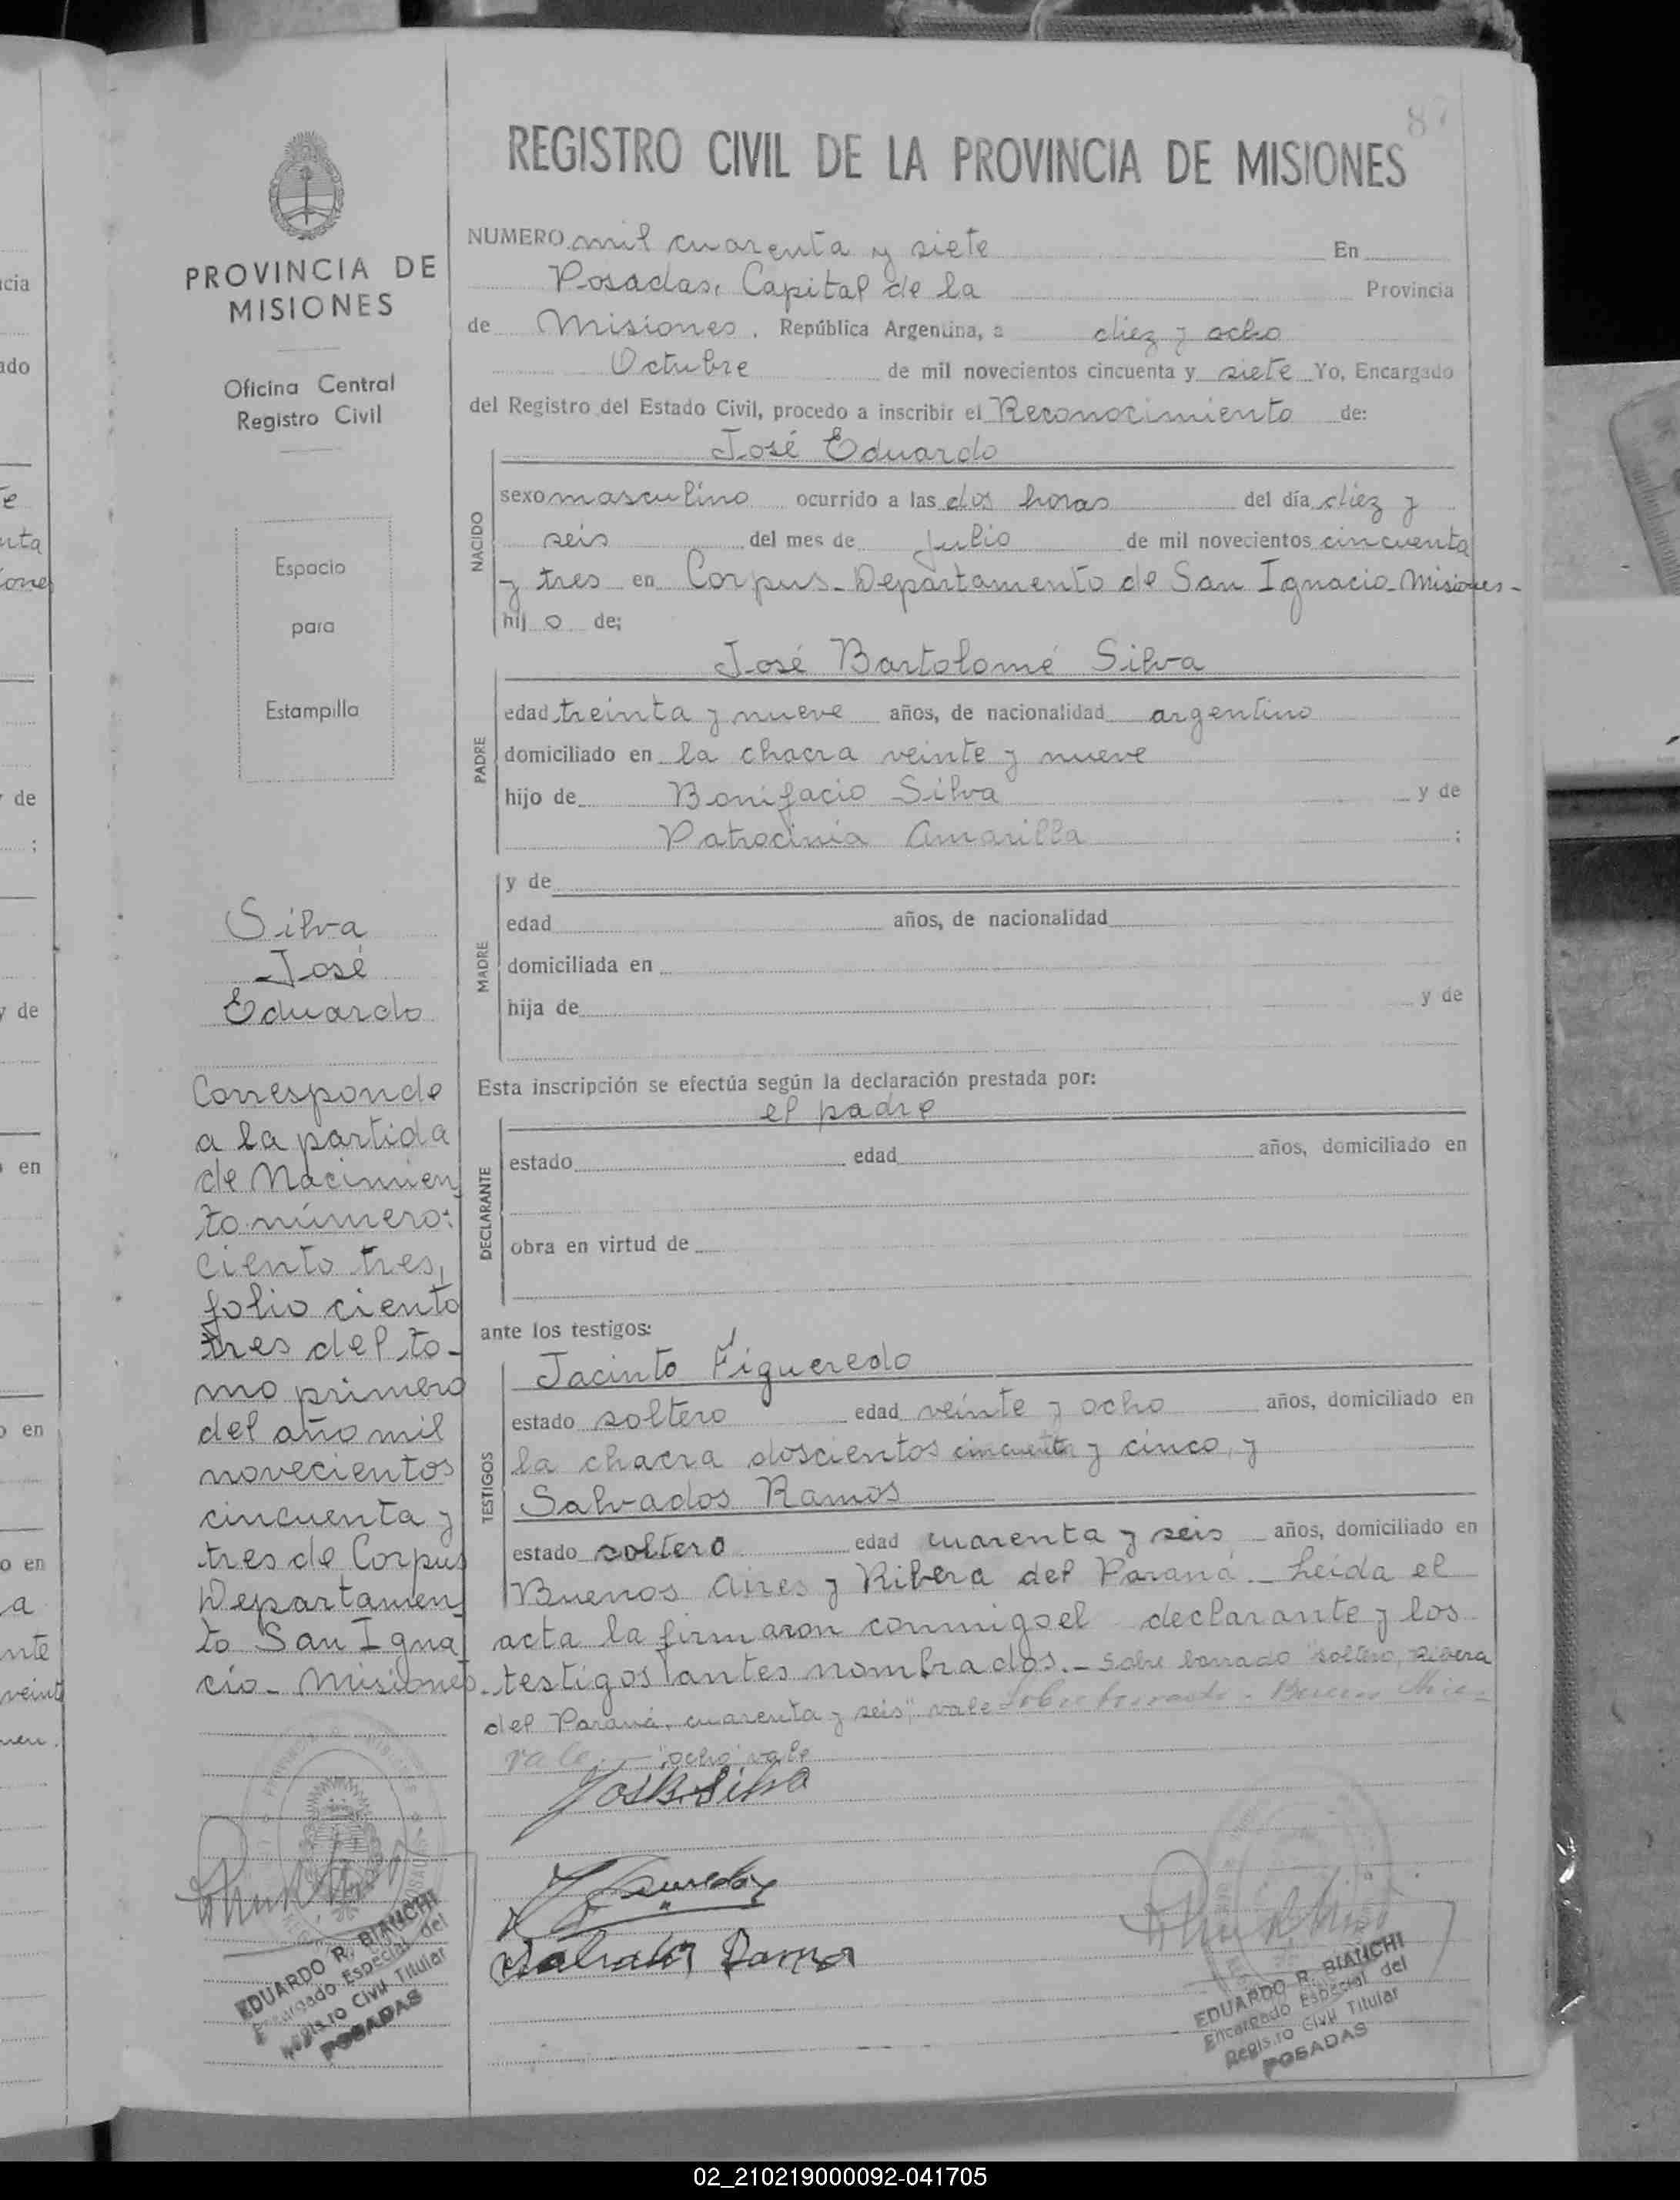 REGISTRO CIVIL DE LA PROVINCIA DE MISIONES
NUMERO mil cuarenta y siete En
Posadas, Capital de la Provincia
de Misiones, República Argentina, a diez y ocho
Octubre de mil novecientos cincuenta y siete Yo, Encargado
del Registro del Estado Civil, procedo a inscribir el Reconocimiento de:
José Eduardo
NACIDO
sexo masculino ocurrido a las dos horas del día diez y
seis del mes de Julio de mil novecientos cincuenta
y tres en Corpus-Departamento de San Ignacio-Misiones-
hij o de;
José Bartolomé Silva
PADRE
edad treinta y nueve años, de nacionalidad argentino
domiciliado en la chacra veinte y nueve
hijo de Bonifacio Silva y de
Patrocinia Amarilla ;
MADRE
y de
edad años, de nacionalidad
domiciliada en
hija de y de
Esta inscripción se efectúa según la declaración prestada por:
el padre
DECLARANTE
estado edad años, domiciliado en
obra en virtud de
ante los testigos:
Jacinto Figueredo
TESTIGOS
estado soltero edad veinte y ocho años, domiciliado en
la chacra doscientos cincuenta y cinco, y
Salvados Ramos
estado soltero edad cuarenta y seis años, domiciliado en
Buenos Aires y Ribera del Paraná.- Leída el
acta la firmaron conmigo el declarante y los
testigos antes nombrados.- Sobre borrado "soltero, Ribera
del Paraná, cuarenta y seis," vale Sobre borrado - Buenos Aires -
vale.- "ocho" vale
José B. Silva
Salvador Ramos
EDUARDO R. BIANCHI
Encargado Especial del
Registro Civil Titular
POSADAS
PROVINCIA DE
MISIONES
Oficina Central
Registro Civil
Espacio
para
Estampilla
Silva
José
Eduardo
Corresponde
a la partida
de Nacimien
to número:
ciento tres,
folio ciento
tres del to-
mo primero
del año mil
novecientos
cincuenta y
tres de Corpus
Departamen
to San Igna
cio- Misiones.
EDUARDO R. BIANCHI
Encargado Especial del
Registro Civil Titular
POSADAS
cia
ado
te
nta
iones
y de
;
y de
o en
o en
o en
a
nte
veinte
02_210219000092-041705